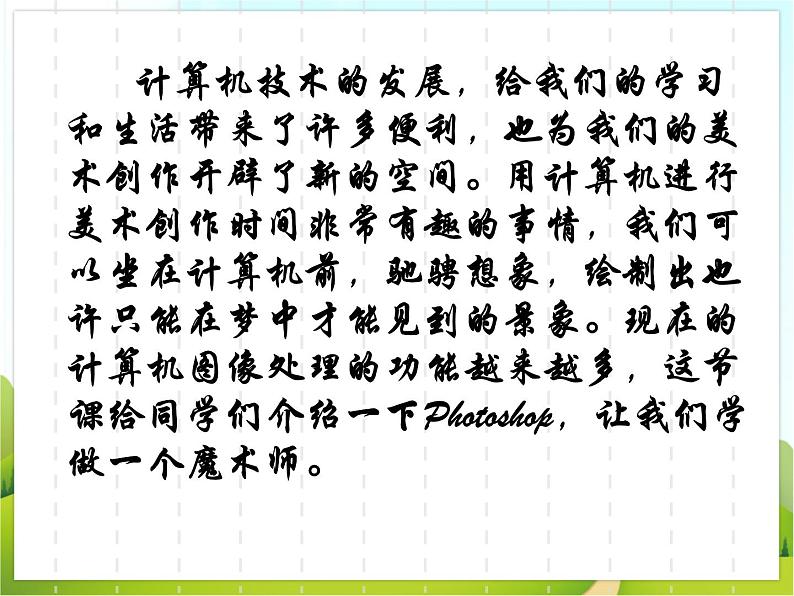 计算机技术的发展，给我们的学习
和生活带来了许多便利，也为我们的美
术创作开辟了新的空间。用计算机进行
美术创作时间非常有趣的事情，我们可
以坐在计算机前，驰骋想象，绘制出也
许只能在梦中才能见到的景象。现在的
计算机图像处理的功能越来越多，这节
课给同学们介绍一下Photoshop，让我们学
做一个魔术师。